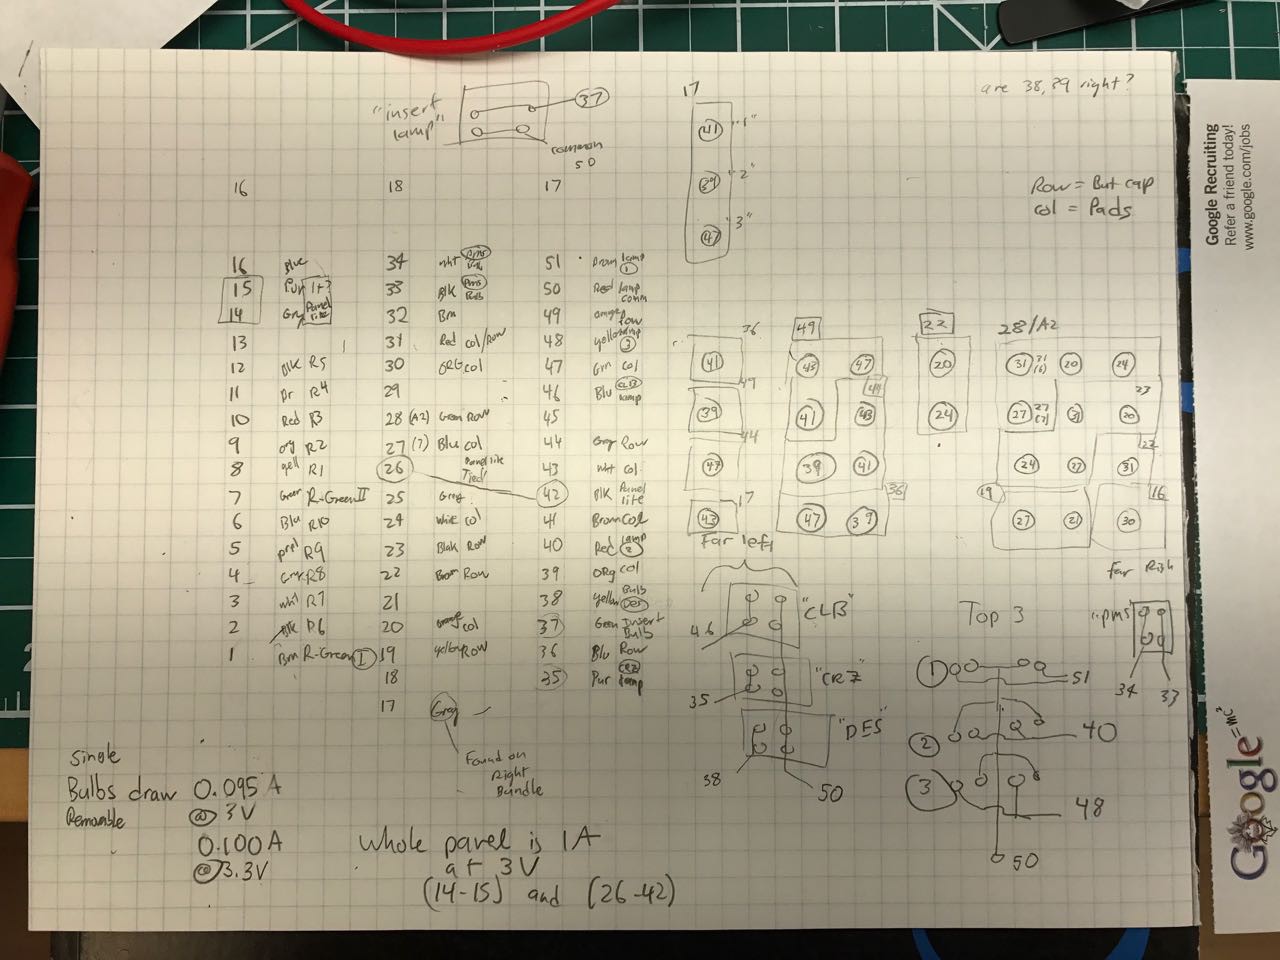 are 38,39 right?
"insert lamp"
37
common
50
17
41 "1"
39 "2"
47 "3"
Row = But cap
col = Pads
16 18 17
16 Blue
15 Pur
14 Gry
Panel lite
13
12 Blk R5
11 Br R4
10 Red R3
9 org R2
8 yell R1
7 Green R-Green II
6 Blu R10
5 prpl R9
4 Gry R8
3 wht R7
2 Blk R6
1 Brn R-Green I
34 wht
33 Blk
32 Brn
31 Red col/Row
30 ORG col
29
28 (A2) Green Row
27 (7) Blue col
26 Panel lite Tied
25 Grey
24 White col
23 Blak Row
22 Brown Row
21
20 orange col
19 yellow Row
18
17 Grey
Found on
Right
Bundle
51 Brown lamp 1
50 Red lamp comm
49 orange row
48 yellow lamp 3
47 Grn col
46 Blu CLB lamp
45
44 Grey Row
43 wht col
42 Blk Panel lite
41 Brown col
40 Red lamp 2
39 ORG col
38 yellow Bulb DES
37 Green Insert Bulb
36 Blu Row
35 Pur CRZ lamp
36
41
49
39
44
47
17
43
Far left
49
43 47
44
41 43
39 41
38
47 39
22
20
24
28/A2
31 20 24
23
27 31 20
22
24 22 31
19 16
27 21 30
Far Righ
"CLB"
46
"CRZ"
35
"DES"
38
50
Top 3
1 51
2 40
3 48
50
"pms"
34 33
Single
Bulbs draw 0.095 A
Removable @ 3V
0.100A
@3.3V
Whole panel is 1A
at 3V
(14-15) and (26-42)
Google Recruiting
Refer a friend today!
www.google.com/jobs
Google
=mc²